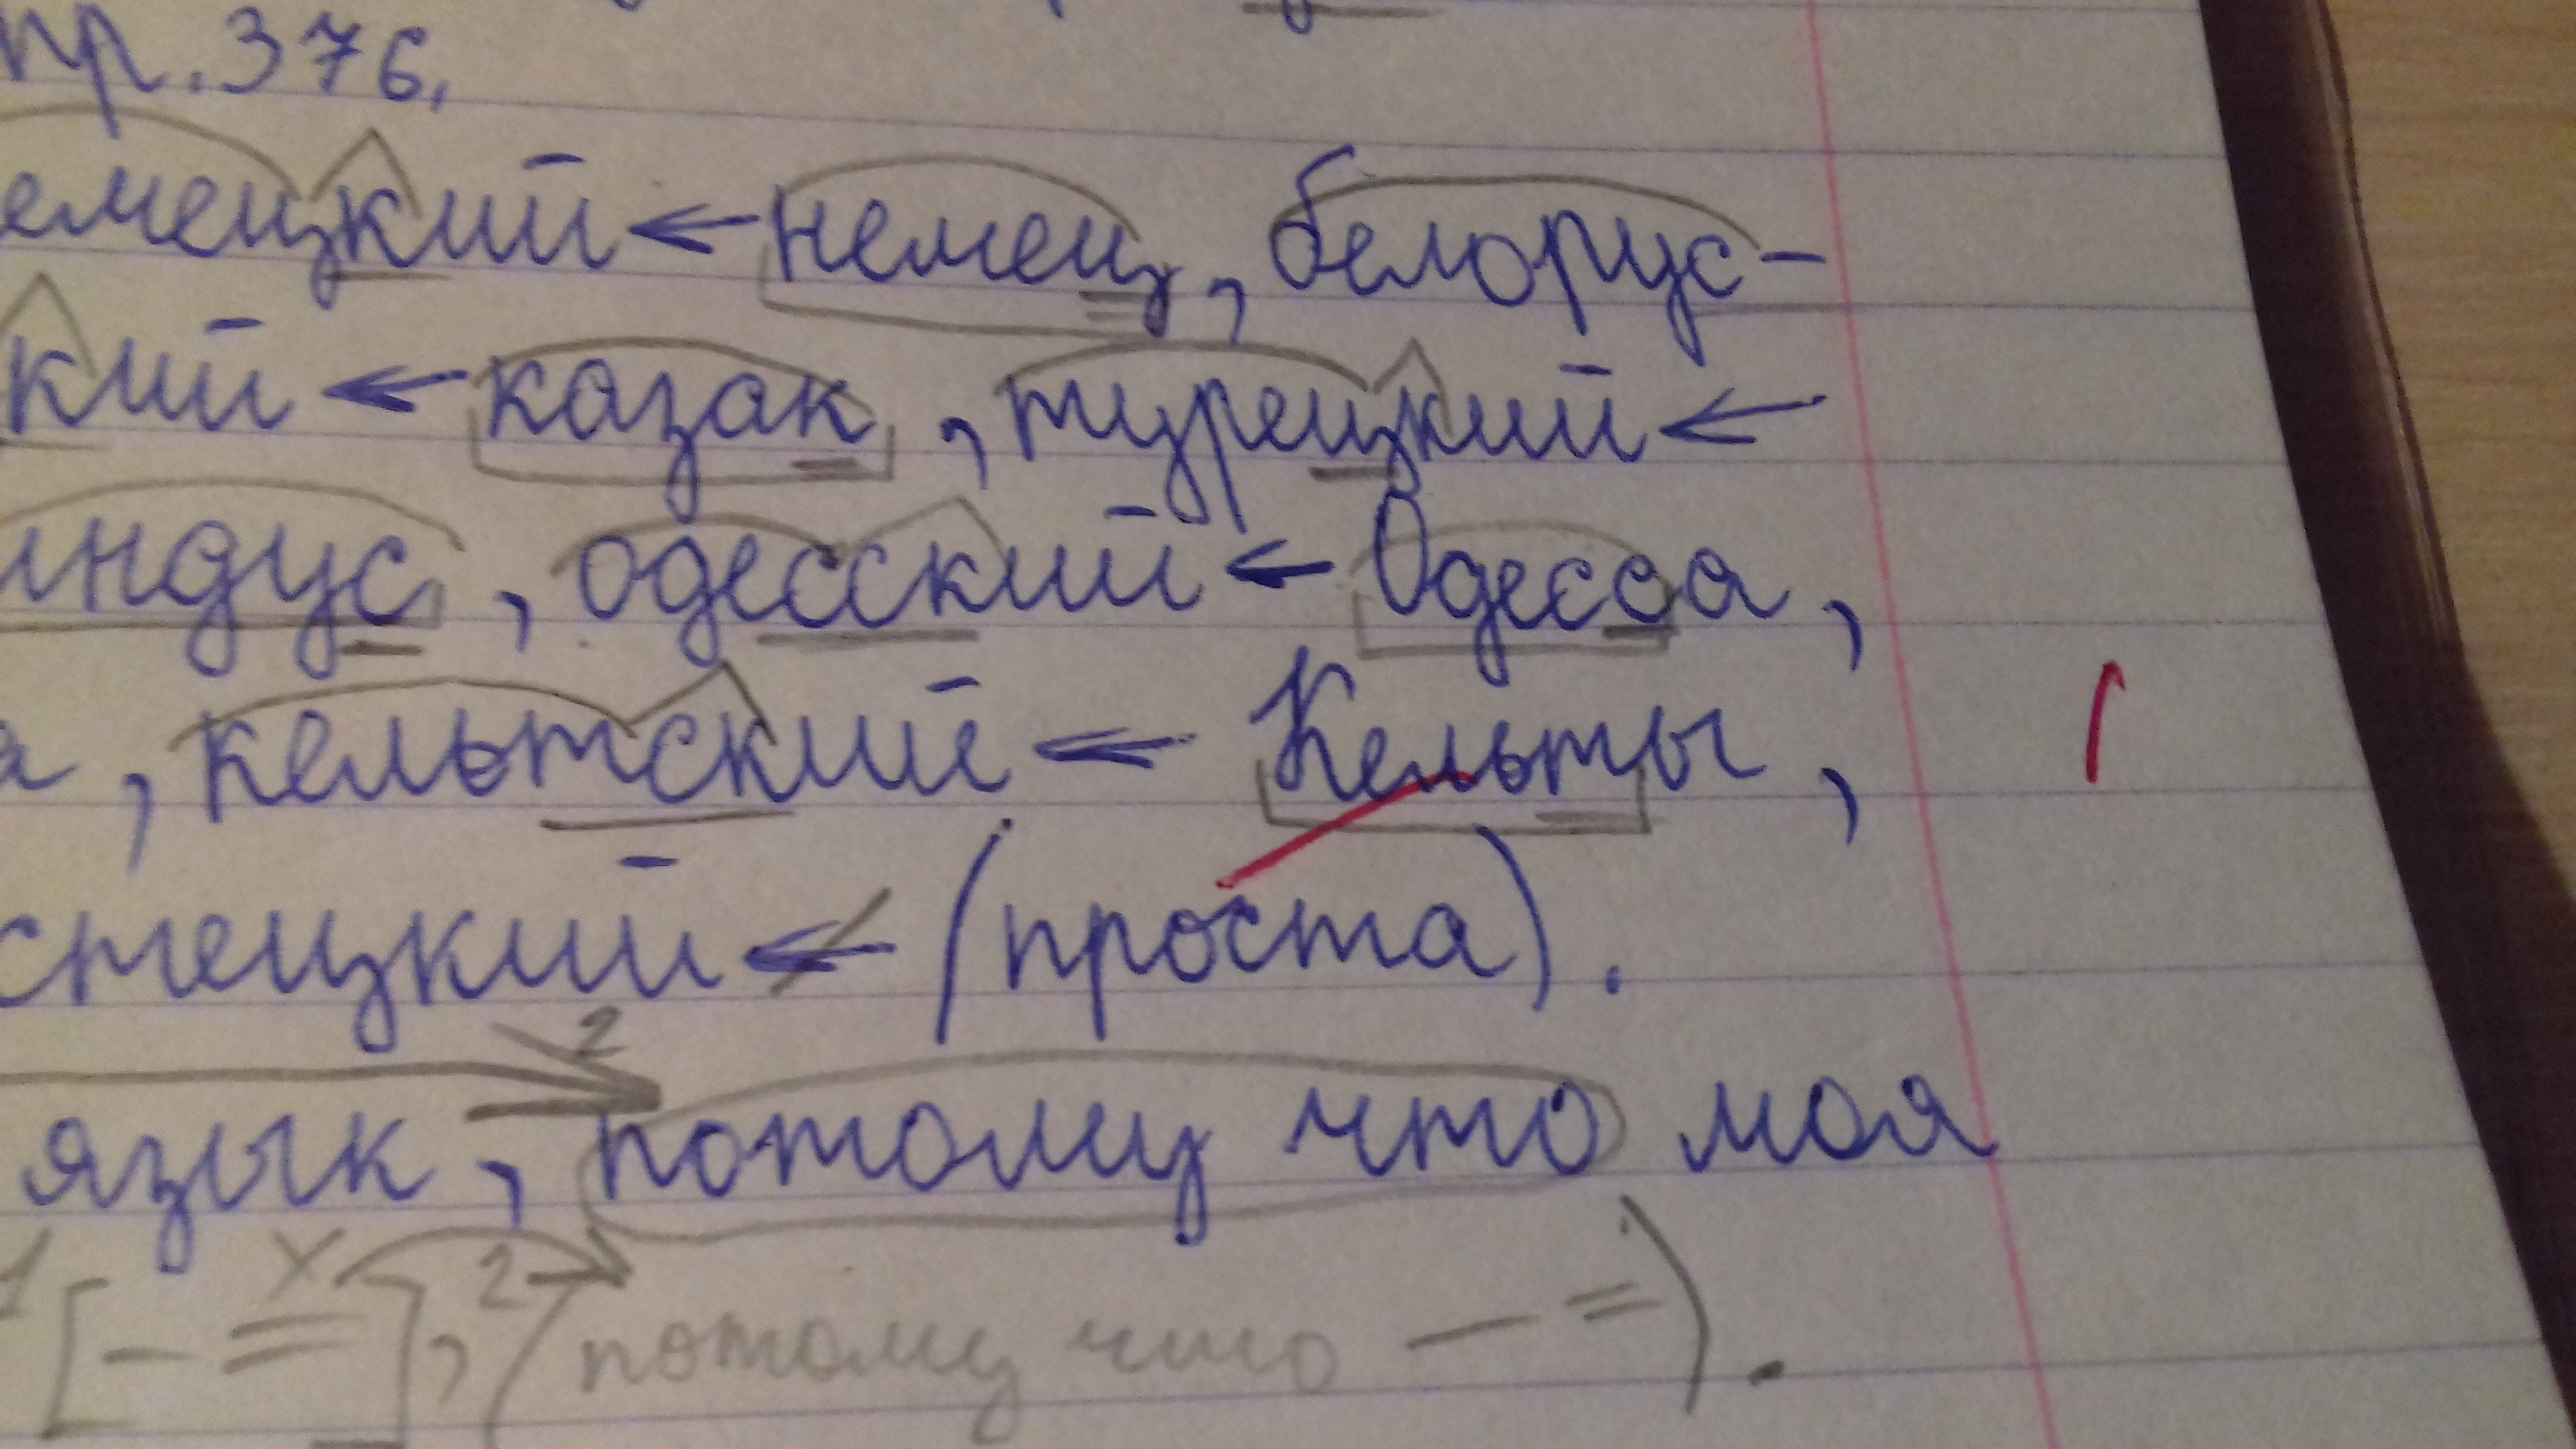 пр. 376.
емецкий ← немец, белорус-
кий ← казак, турецкий ←
индус, одесский ← Одесса,
а, кельтский ← Кельты,
стецкий ← (проста).
2
язык, потому что моя
1 [– = х], 2 (потому что – =).